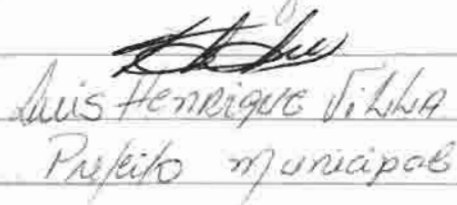 Luis HENRIQUE ViLLA
Prefeito municipal